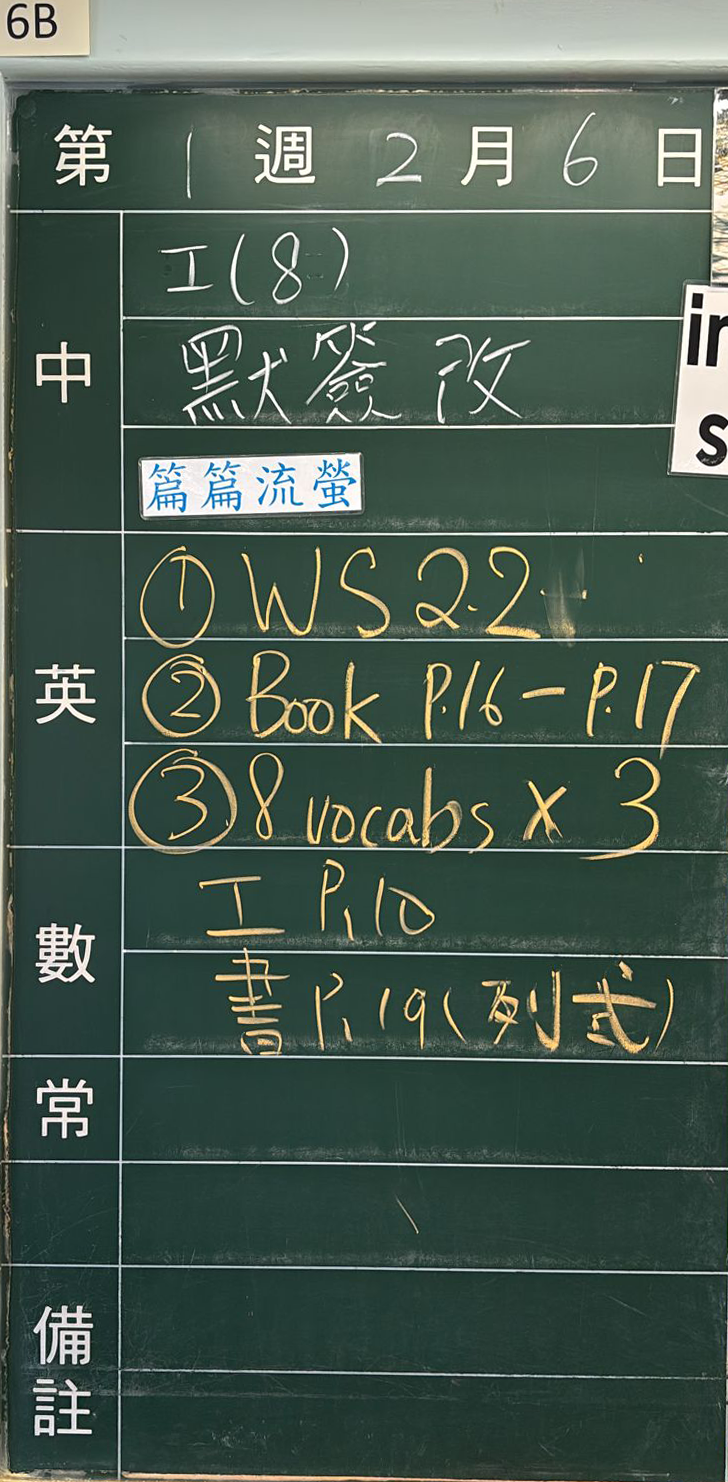 6B
第 1 週 2 月 6 日
中
工(8)
默簽改
篇篇流螢
英
① WS 2.2
② Book P.16 - P.17
③ 8 vocabs x 3
數
工 P.10
書 P.19(列式)
常
備註
in
s